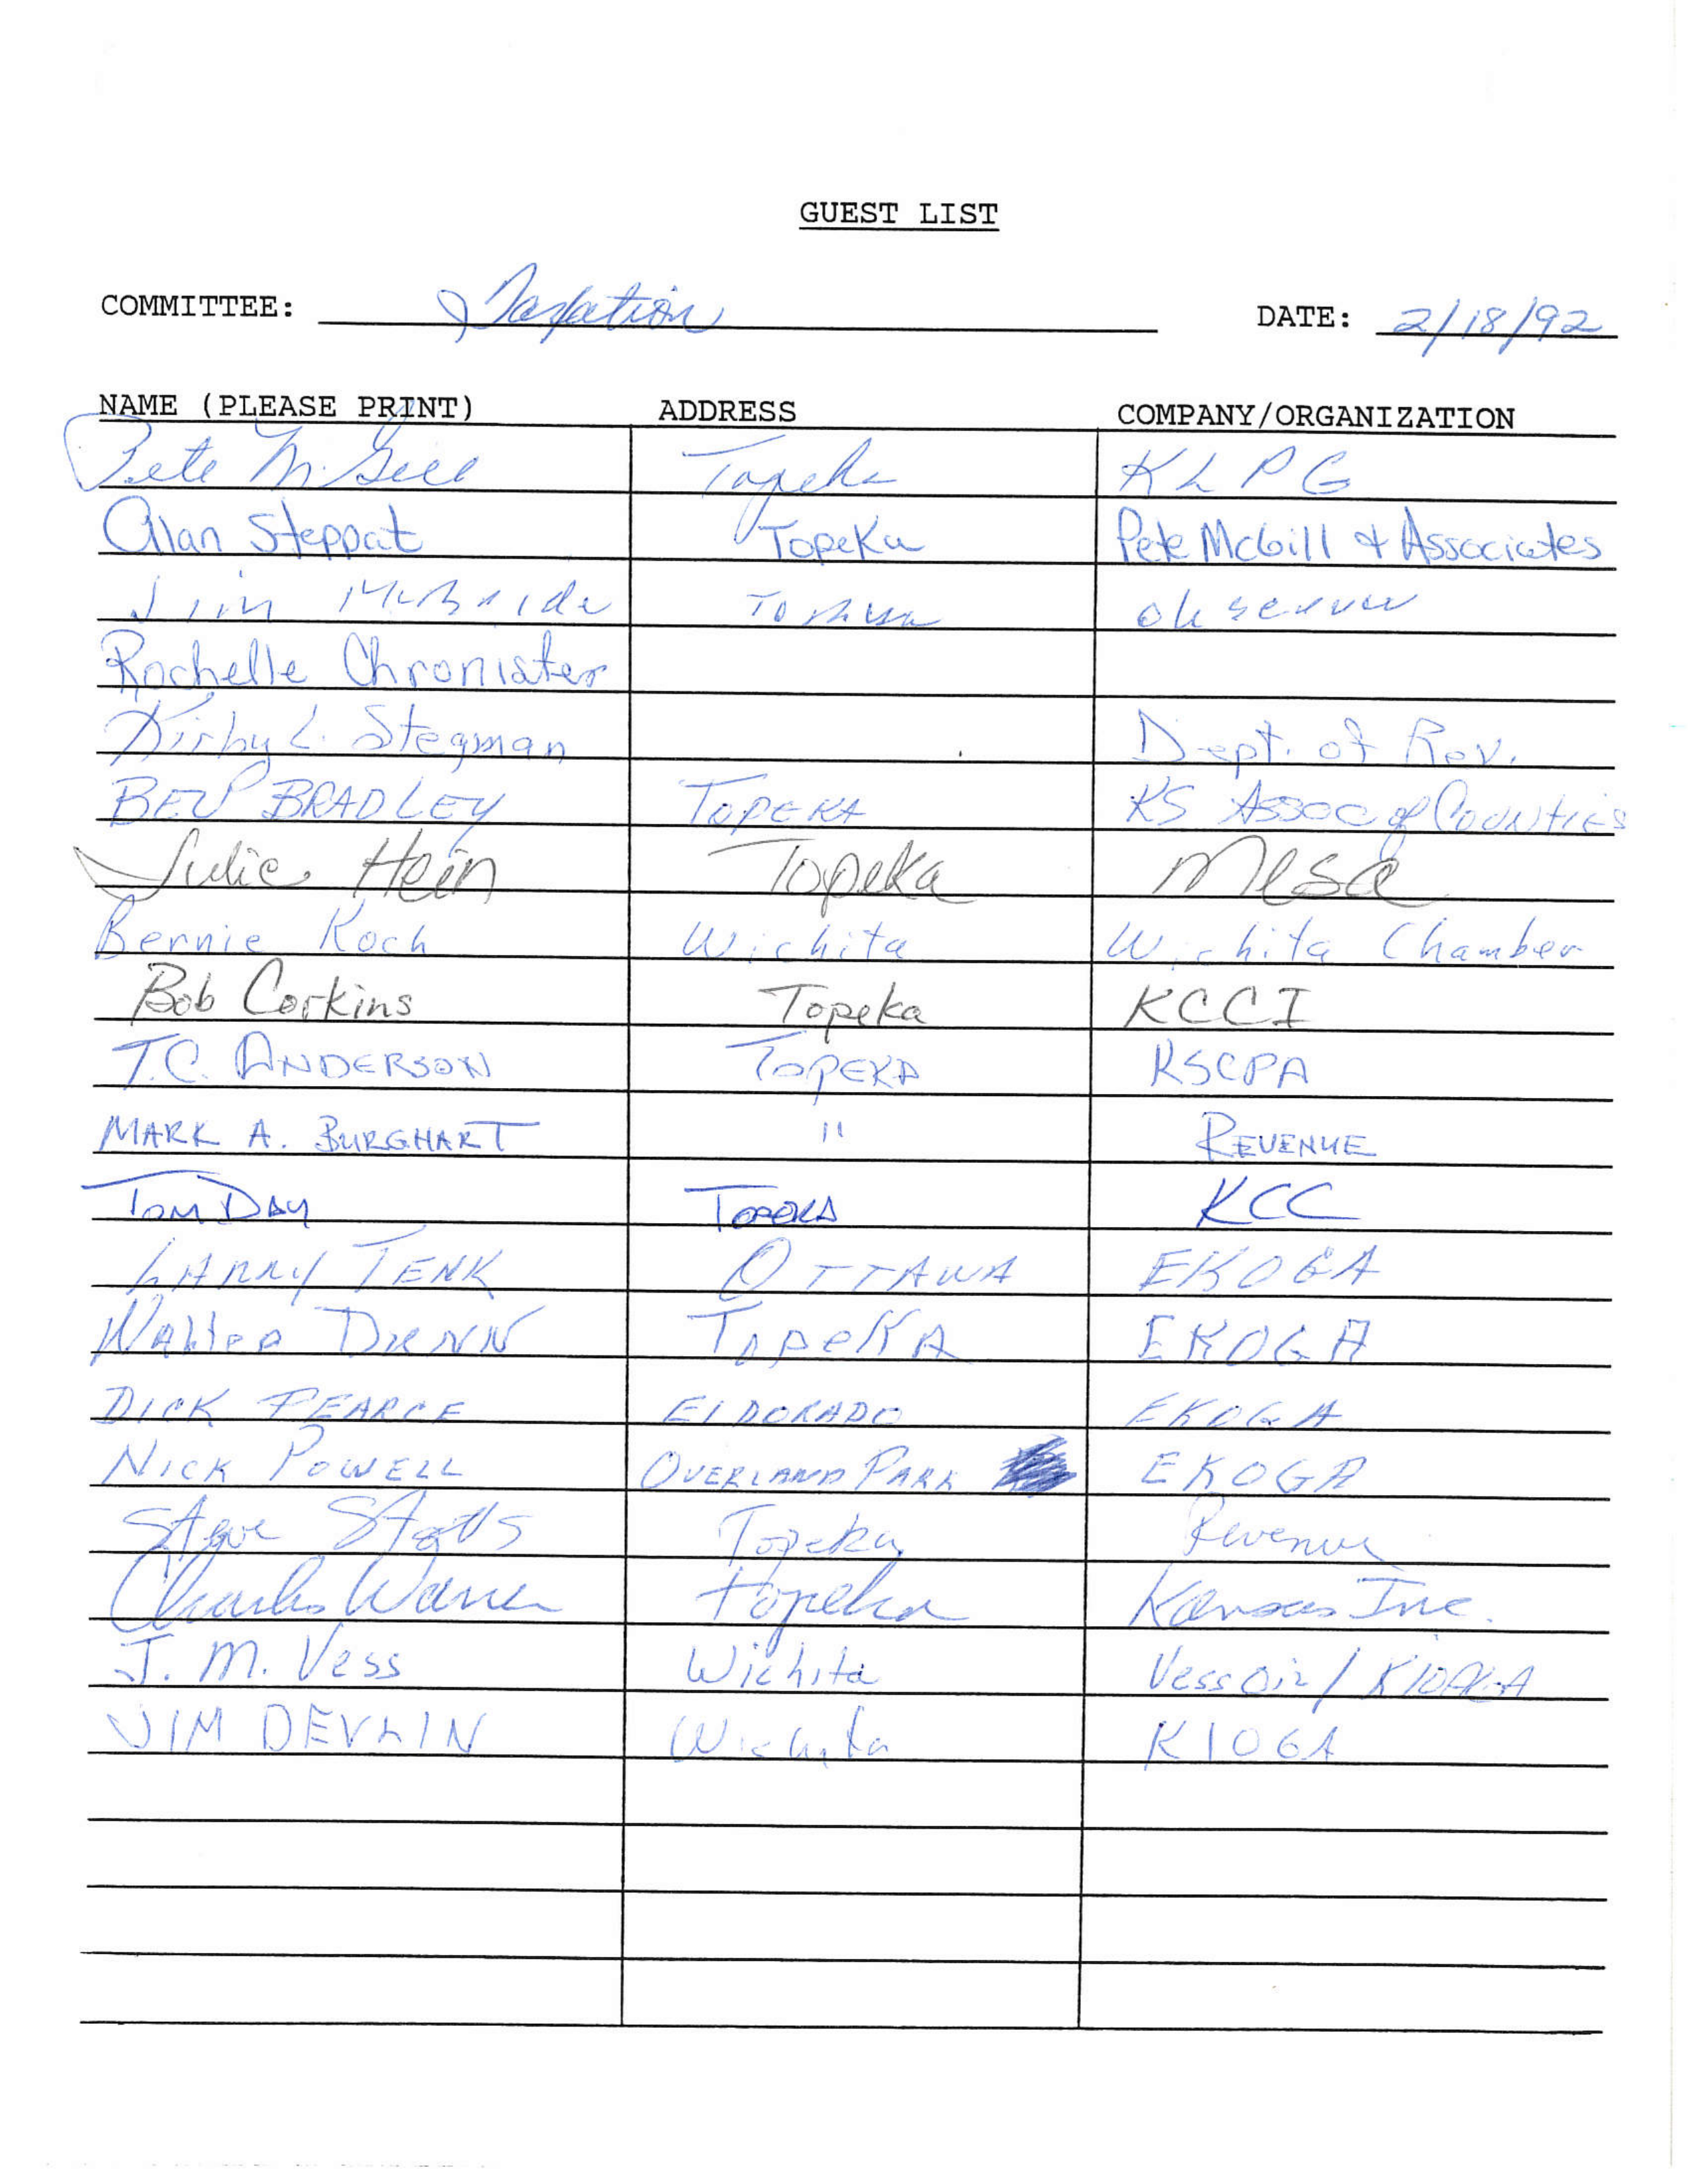 GUEST LIST
COMMITTEE: Taxation DATE: 2/18/92
NAME (PLEASE PRINT) ADDRESS COMPANY/ORGANIZATION
Pete McGill Topeka KLPG
Alan Steppat Topeka Pete McGill & Associates
Jim McBride Topeka observer
Rochelle Chronister
Kirby L. Stegman Dept. of Rev.
BEV BRADLEY TOPEKA KS Assoc of Counties
Julie Hein Topeka Mesa
Bernie Koch Wichita Wichita Chamber
Bob Corkins Topeka KCCI
T.C. ANDERSON TOPEKA KSCPA
MARK A. BURGHART " REVENUE
TOM DAY TOPEKA KCC
LARRY TENK OTTAWA EKOGA
Walter DUNN TopeKA EKOGA
DICK PEARCE ElDORADO EKOGA
NICK POWELL OVERLAND PARK EKOGA
Steve Stotts Topeka Revenue
Charles Warren topeka Kansas Inc.
J. M. Vess Wichita Vess Oil / KIOGA
JIM DEVLIN Wichita KIOGA